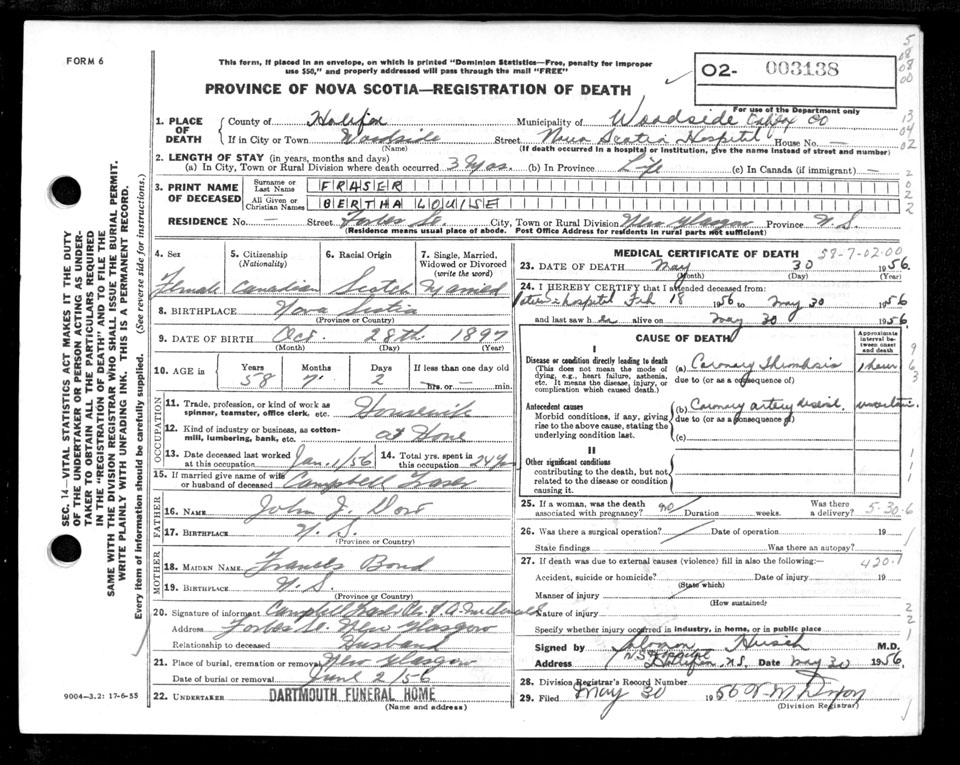 FORM 6
This form, if placed in an envelope, on which is printed "Dominion Statistics—Free, penalty for improper
use $50," and properly addressed will pass through the mail "FREE"
O2- 003138
PROVINCE OF NOVA SCOTIA—REGISTRATION OF DEATH
For use of the Department only
1. PLACE OF DEATH
County of Halifax Municipality of Woodside Halifax Co
If in City or Town Woodside Street Nova Scotia Hospital House No. —
(Name) (If death occurred in a hospital or institution, give the name instead of street and number)
2. LENGTH OF STAY (in years, months and days)
(a) In City, Town or Rural Division where death occurred 3 mos. (b) In Province Life (c) In Canada (if immigrant) —
3. PRINT NAME OF DECEASED
Surname or Last Name FRASER
All Given or Christian Names BERTHA LOUISE
RESIDENCE No. — Street Forbes St. City, Town or Rural Division New Glasgow N.S.
(Residence means usual place of abode. Post Office Address for residents in rural parts not sufficient)
SEC. 14—VITAL STATISTICS ACT MAKES IT THE DUTY
OF THE UNDERTAKER OR PERSON ACTING AS UNDER-
TAKER TO OBTAIN ALL THE PARTICULARS REQUIRED
IN THE "REGISTRATION OF DEATH" AND TO FILE THE
SAME WITH THE DIVISION REGISTRAR WHO SHALL ISSUE THE BURIAL PERMIT.
WRITE PLAINLY WITH UNFADING INK. THIS IS A PERMANENT RECORD.
Every item of information should be carefully supplied. (See reverse side for instructions.)
4. Sex
Female
5. Citizenship (Nationality)
Canadian
6. Racial Origin
Scotch
7. Single, Married, Widowed or Divorced (write the word)
Married
8. BIRTHPLACE Nova Scotia
(Province or Country)
9. DATE OF BIRTH Oct. 28th. 1897
(Month) (Day) (Year)
10. AGE in Years Months Days If less than one day
58 7 2 —hrs. or —min.
OCCUPATION
11. Trade, profession, or kind of work as spinner, teamster, office clerk, etc. Housewife
12. Kind of industry or business, as cotton-mill, lumbering, bank, etc. at Home
13. Date deceased last worked at this occupation Jan. 1/56
14. Total yrs. spent in this occupation 24 yrs
15. If married give name of wife or husband of deceased Campbell Fraser
FATHER
16. NAME John J.
17. BIRTHPLACE N.S.
(Province or Country)
MOTHER
18. MAIDEN NAME Frances Bond
19. BIRTHPLACE N.S.
(Province or Country)
20. Signature of informant Campbell Fraser
Address Forbes St. New Glasgow
Relationship to deceased Husband
21. Place of burial, cremation or removal New Glasgow
Date of burial or removal June 2/56
22. UNDERTAKER DARTMOUTH FUNERAL HOME
(Name and address)
9004-3.2: 17-6-55
MEDICAL CERTIFICATE OF DEATH 58-7-02.00
23. DATE OF DEATH May 30 1956.
(Month) (Day) (Year)
24. I HEREBY CERTIFY that I attended deceased from:
hospital Feb 18 1956 to May 30 1956
and last saw her alive on May 30 1956.
CAUSE OF DEATH
Approximate interval between onset and death
I
Disease or condition directly leading to death
(This does not mean the mode of dying, e.g., heart failure, asthenia, etc. It means the disease, injury, or complication which caused death.)
(a) Coronary Thrombosis 1 hour
due to (or as a consequence of)
Antecedent causes
Morbid conditions, if any, giving rise to the above cause, stating the underlying condition last.
(b) Coronary artery disease uncertain
due to (or as a consequence of)
(c)
II
Other significant conditions
contributing to the death, but not related to the disease or condition causing it.
25. If a woman, was the death associated with pregnancy? no Duration weeks. Was there a delivery? 5-30-6
26. Was there a surgical operation? Date of operation 19
State findings Was there an autopsy?
27. If death was due to external causes (violence) fill in also the following:— 420.1
Accident, suicide or homicide? Date of injury 19
(State which)
Manner of injury
(How sustained)
Nature of injury
Specify whether injury occurred in industry, in home, or in public place
Signed by Hirsch M.D.
Address N.S. Hospital Halifax, N.S. Date May 30 1956.
28. Division Registrar's Record Number
29. Filed May 30 1956
(Division Registrar)